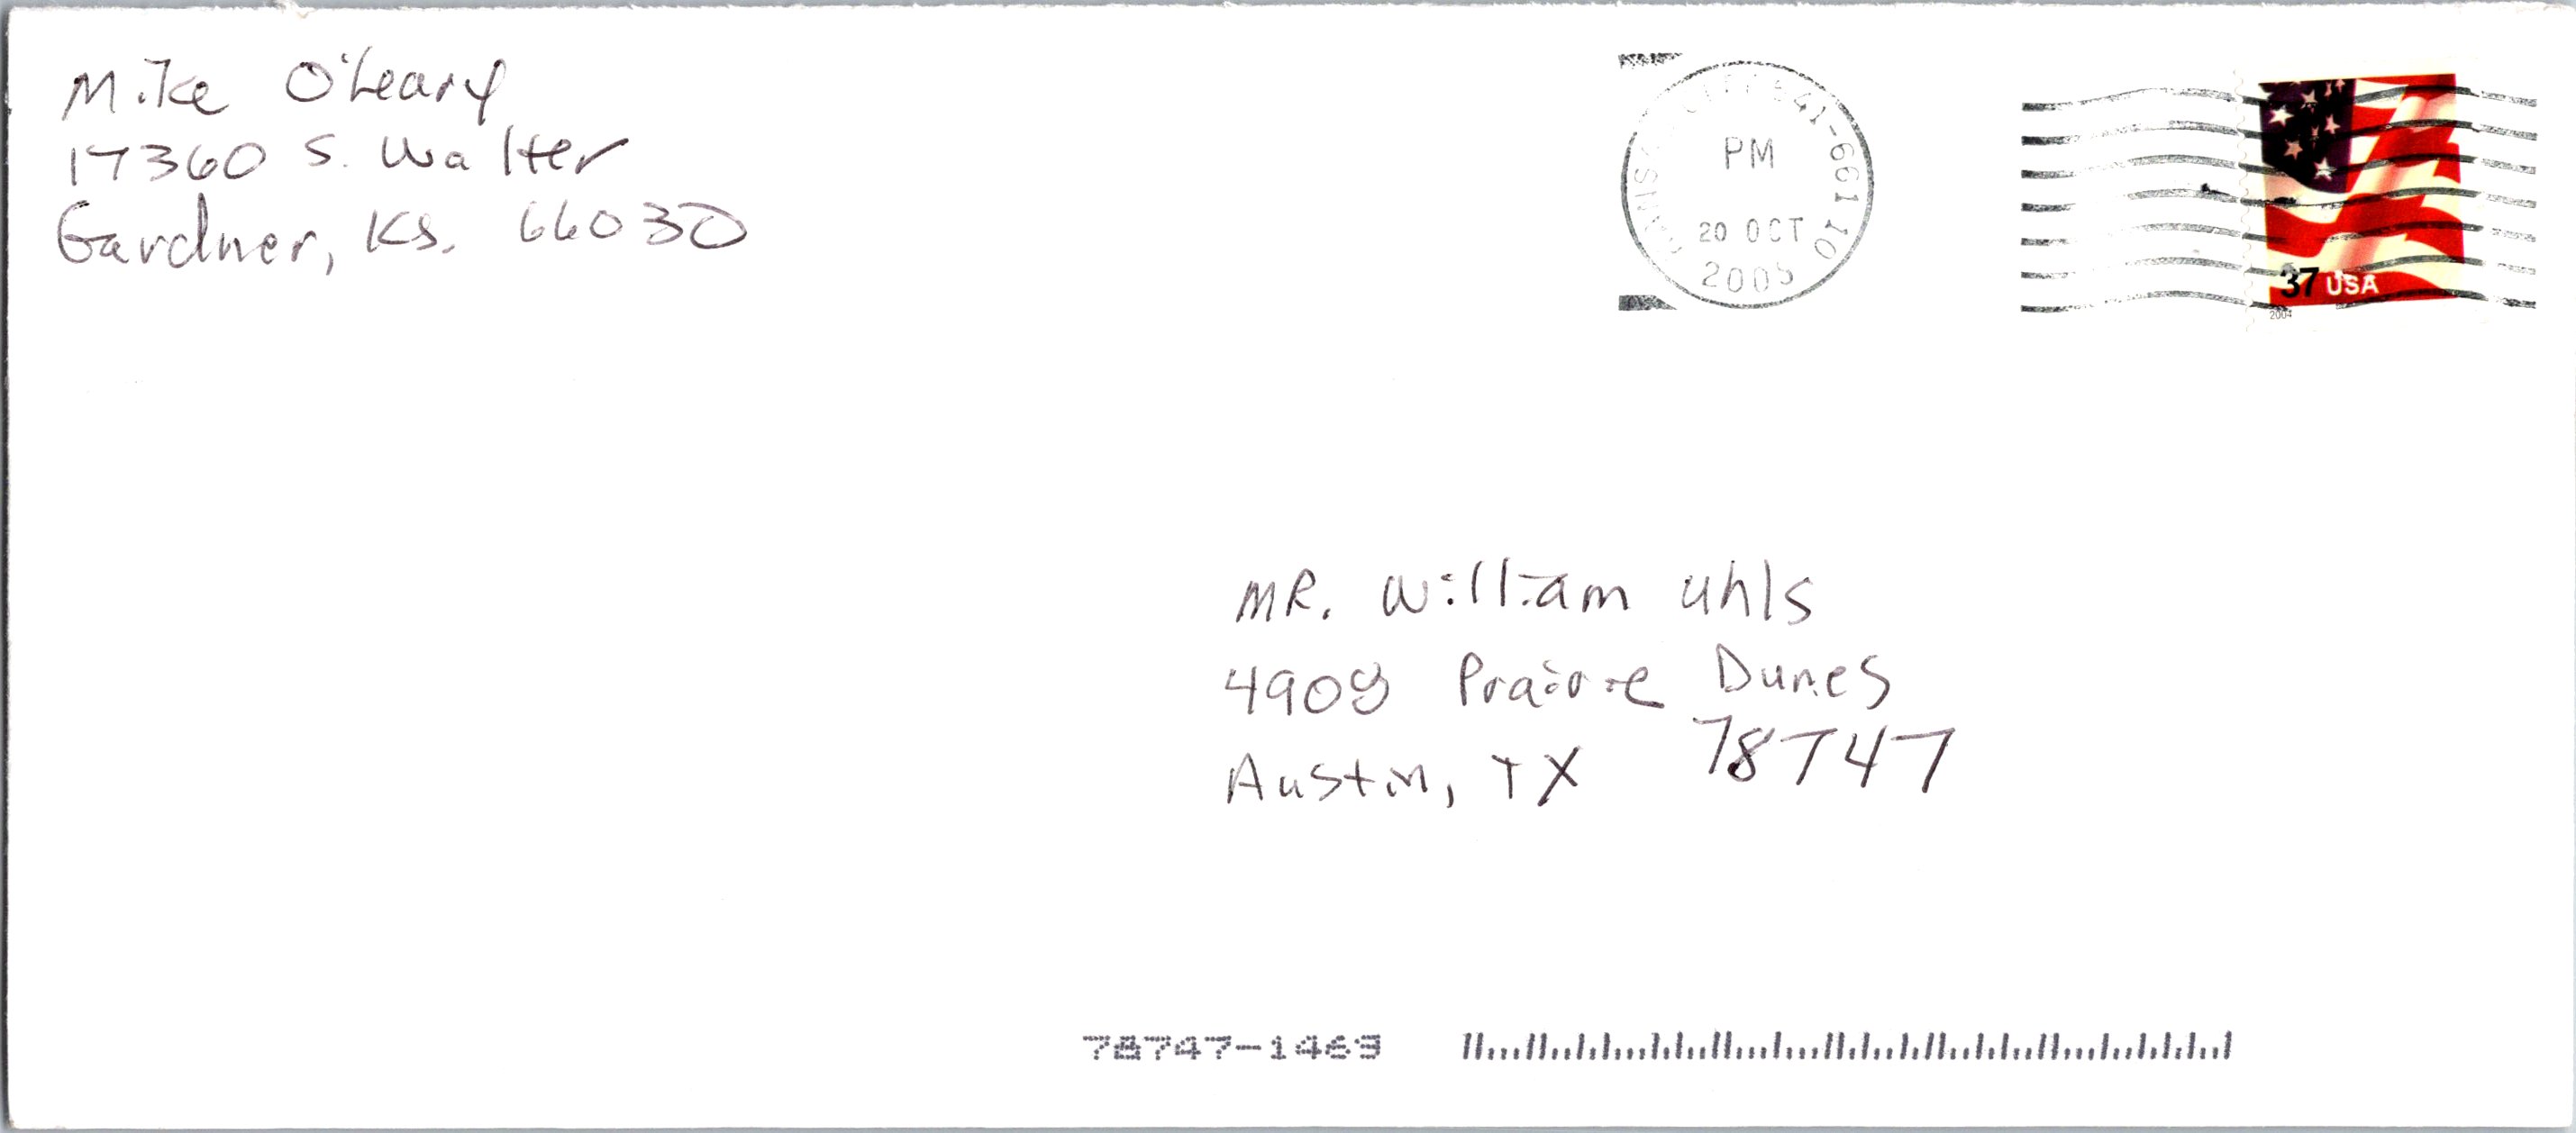 Mike O'Leary
17360 S. Walter
Gardner, KS. 66030
641-661 10
PM
20 OCT
2005
37 USA
2004
MR. William Uhls
4908 Prairie Dunes
Austin, TX 78747
78747-1463